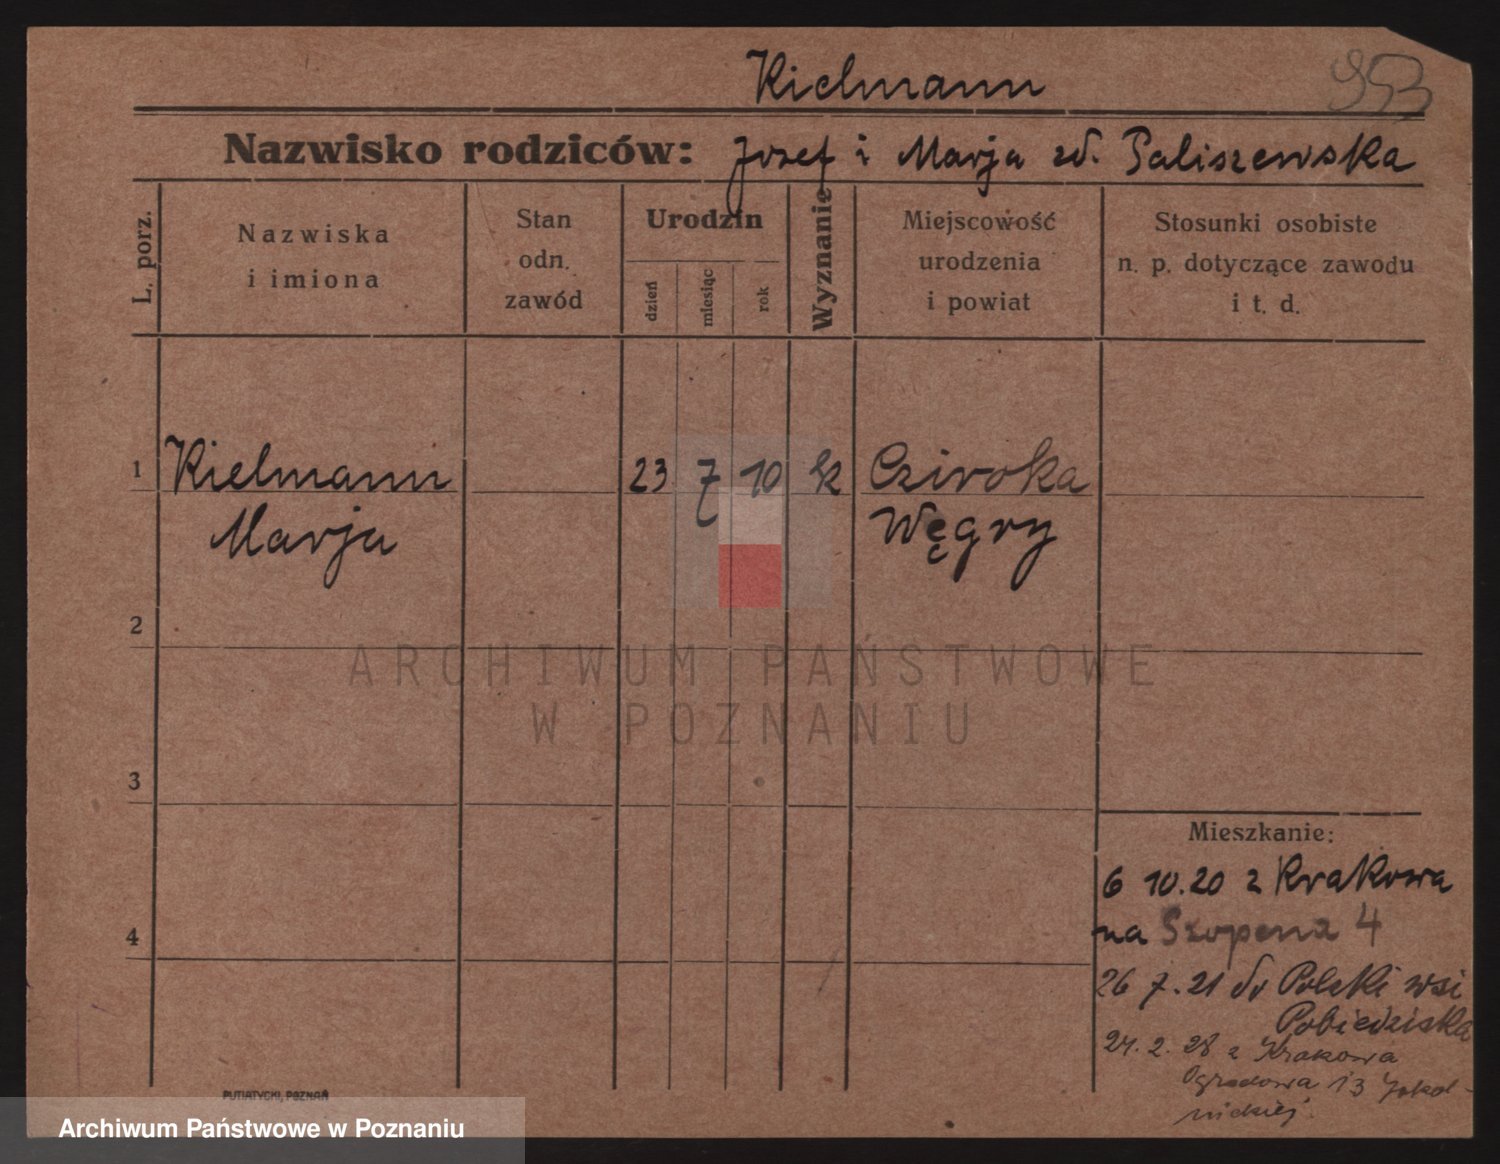 Kielmann
953
Nazwisko rodziców: Jozef i Marja zd. Paliszewska
L. porz.
Nazwiska
i imiona
Stan
odn.
zawód
Urodzin
dzień
miesiąc
rok
Wyznanie
Miejscowość
urodzenia
i powiat
Stosunki osobiste
n. p. dotyczące zawodu
i t. d.
1 Kielmann 23 7 10 k Cziroka
Marja Węgry
2
ARCHIWUM PAŃSTWOWE
W POZNANIU
3
Mieszkanie:
6 10.20 z Krakowa
4
na Szopena 4
26 7.21 do Polski wsi
Pobiedziska
24. 2. 28 z Krakowa
Ogrodowa 13
PUTIATYCKI, POZNAŃ
Archiwum Państwowe w Poznaniu